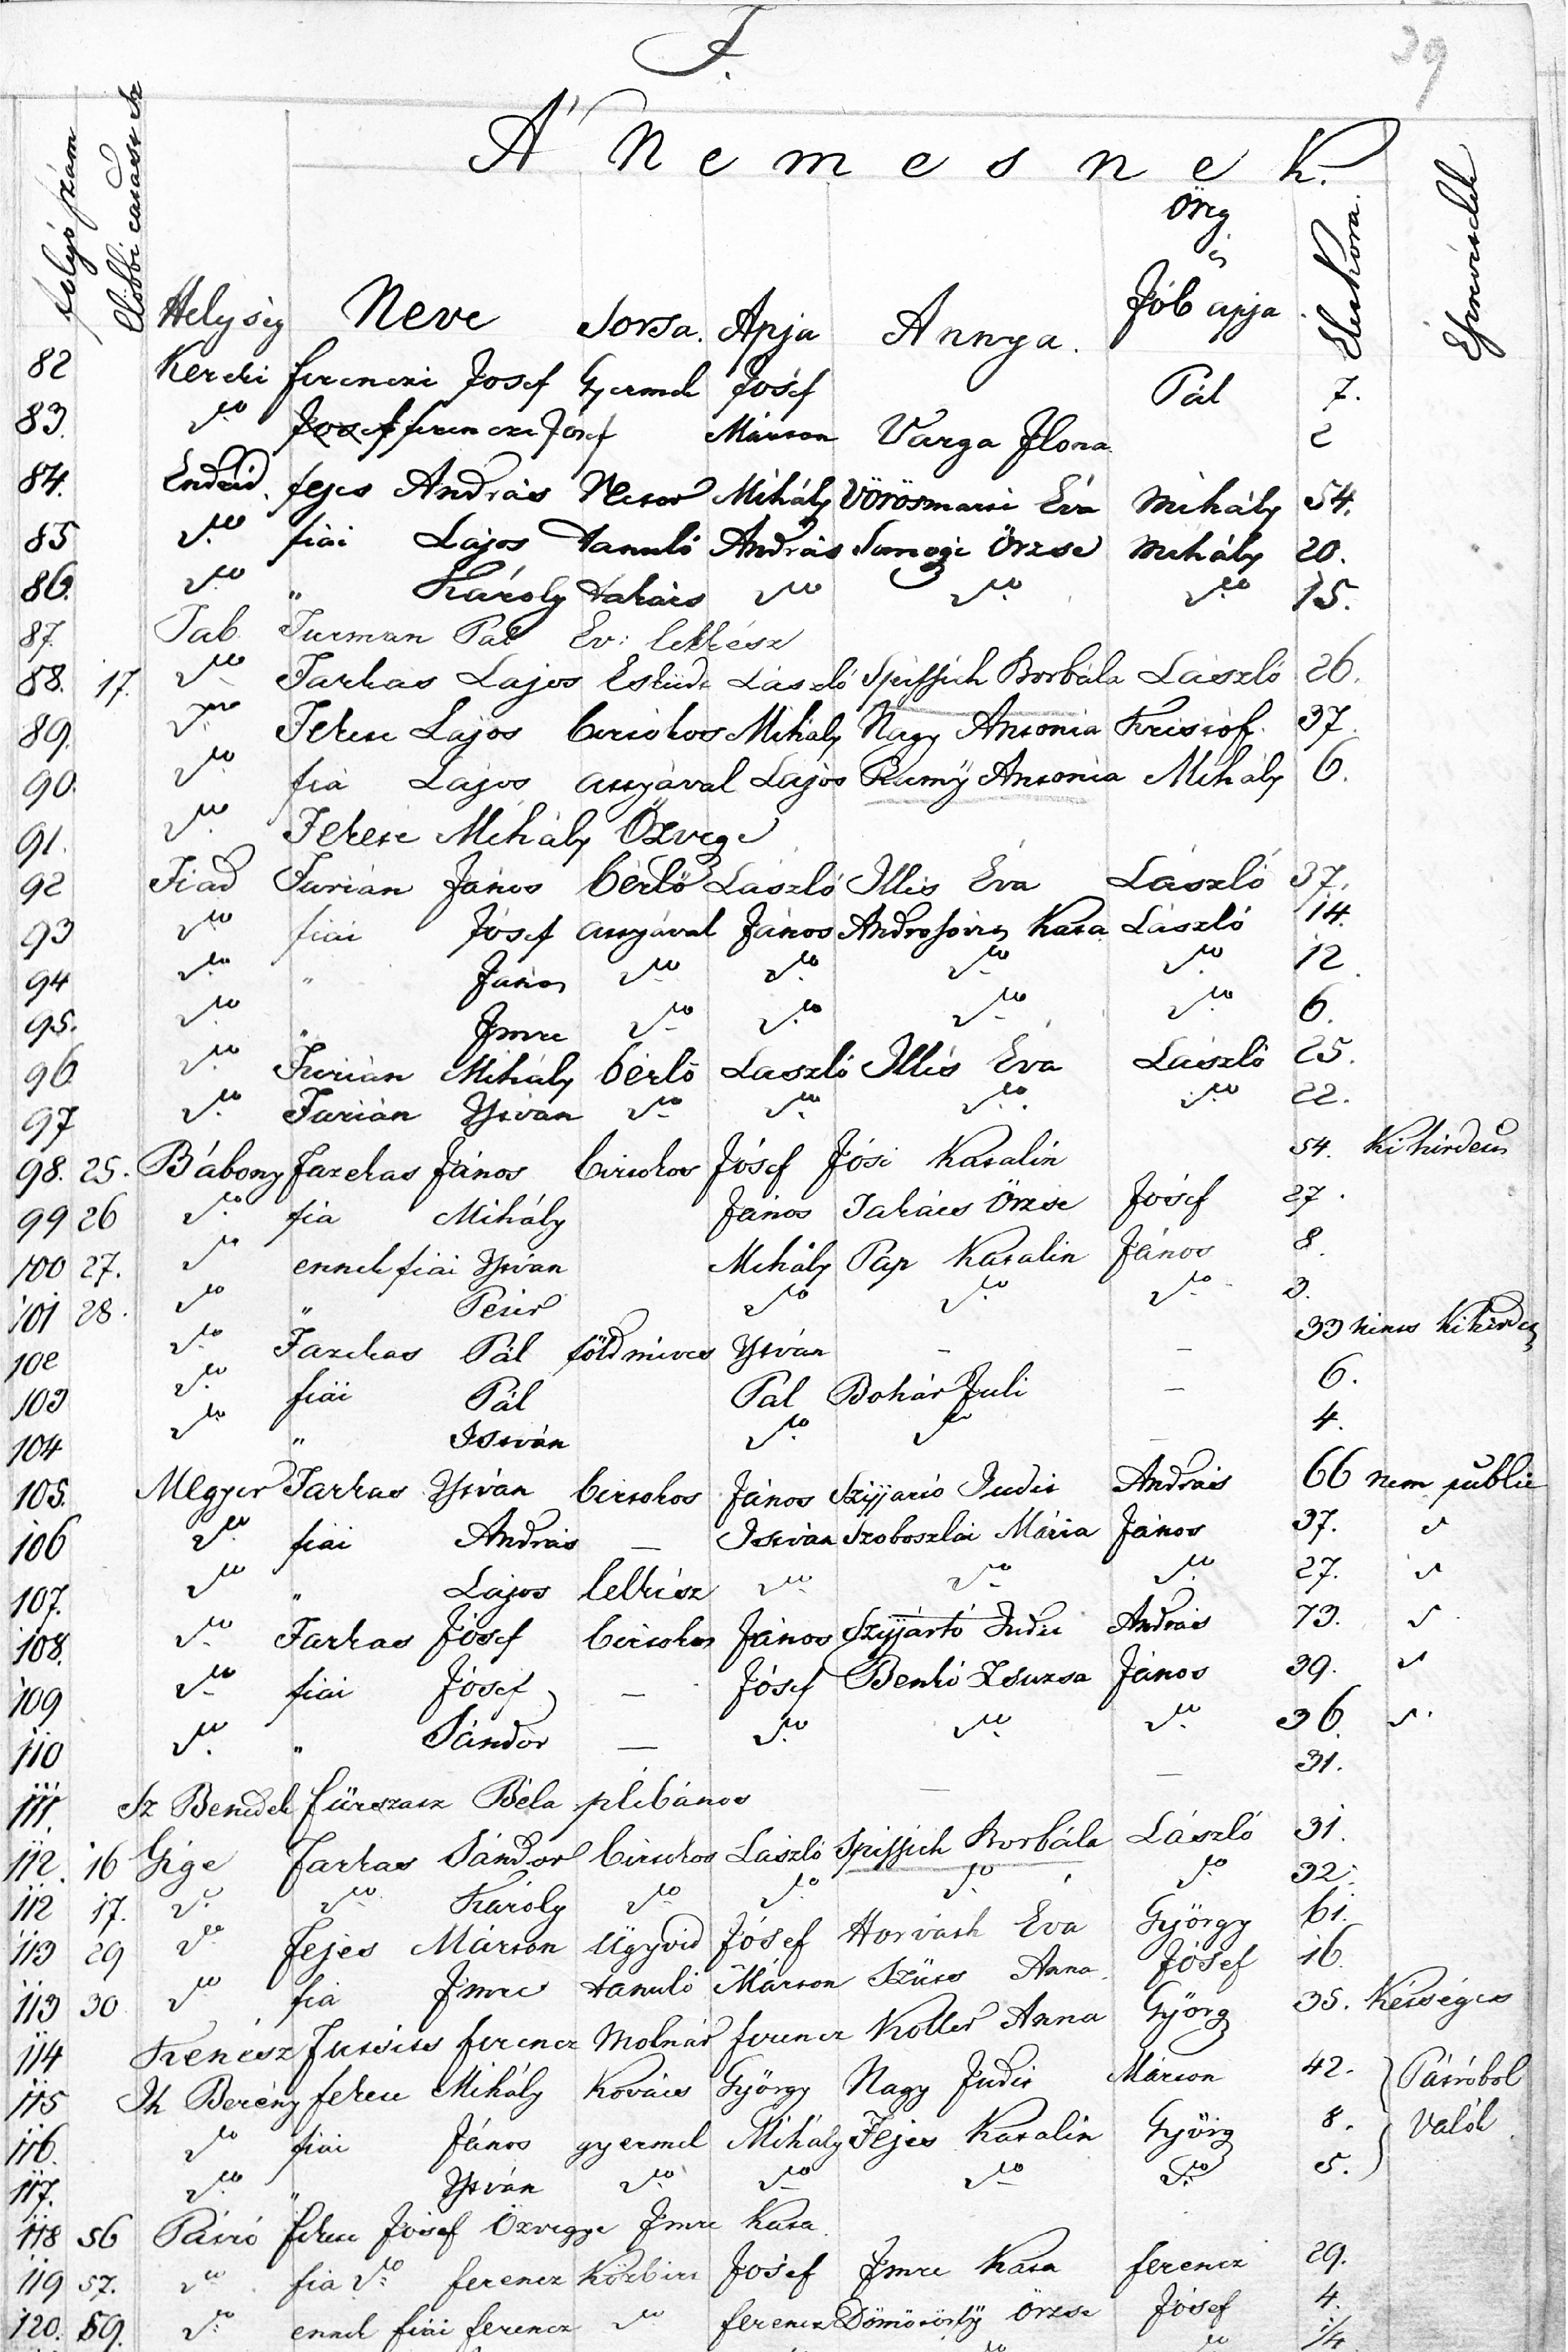 F.
39
A' Nemesnek.
folyó szám
Előbbi
Helység Neve Sorsa. Apja Annya. Örg és Jób apja Élet Kora. Észrevételek
82 Kereki ferenczi Josef Gyermek Joséf Pál 7.
83. do ferencze Josef Márton Varga Ilona 2
84. Endréd. fejes András Nemes Mihály Vörösmarti Éva Mihály 54.
85 do fiai Lajos tanuló András Somogyi Örzse Mihály 20.
86. do " Károly takács do do do 15.
87. Tab Furman Pál Ev: lelkész
88. 17. do Farkas Lajos Esküdt László Spissich Borbála László 26.
89. do Fekete Lajos birtokos Mihály Nagy Antonia Kristóf. 37.
90. do fia Lajos attyával Lajos Rumÿ Antonia Mihály 6.
91. do Fekete Mihály Özvegye
92 Fiad Furián János bérlő László Illés Éva László 37.
93 do fiai Jósef attyával János Kata László 14.
94 do " János do do do do 12.
95. do " Imre do do do do 6.
96 do Furián Mihály bérlő László Illés Éva László 25.
97 do Furián István do do do do 22.
98. 25. Bábony Fazekas János birtokos Jósef Jósi Katalin 54. Ki hirdetve
99 26 do fia Mihály János Takács Örzse Jósef 27.
100 27. do ennek fiai István Mihály Pap Katalin János 8.
101 28. do " Péter do do do 3.
102 do Fazekas Pál földmives István - - 33 nincs Kihirdetve
103 do fiäi Pál Pál Bohár Juli - 6.
104 do " István do do 4.
105. Megyer Farkas István birtokos János Szijjartó Judit András 66 nem public
106 do fiai András — István Szoboszlai Mária János 37. do
107. do " Lajos lelkész do do do 27. do
108. do Farkas Jósef birtokos János Szijjártó Judit András 73. do
109 do fiai Jósef — Jósef Benkó Zsuzsa János 39. do
110 do " Sándor — do do do 36. do
111. Sz Benedek fürszasz Béla plébános — — 31.
112. 16 Gige Farkas Sándor birtokos László Spissich Borbála László 31.
112 17. do do Károly do do do do 32.
113 29 do Fejes Márton Ügyvéd Jósef Horváth Éva György 61.
113 30 do fia Imre tanuló Márton Szücs Anna Jósef 16.
114 Kenész ferencz Molnár ferencz Koller Anna Györg 35. Kétséges
115 Th Berény fekete Mihály Kovács György Nagy Judit Márton 42. Pátróbol
116. do fiai János gyermek Mihály Fejes Katalin Györg 8. Valók
117. do " István do do do do 5.
118 56 Pátró fekete Jósef Özvegye Imre Kata
119 57. do fia do ferencz Közbirt Jósef Imre Kata ferencz 29.
120. 59. do ennek fiái ferencz do ferencz Dömötörfÿ Örzse Jósef 4.
do do 1/4